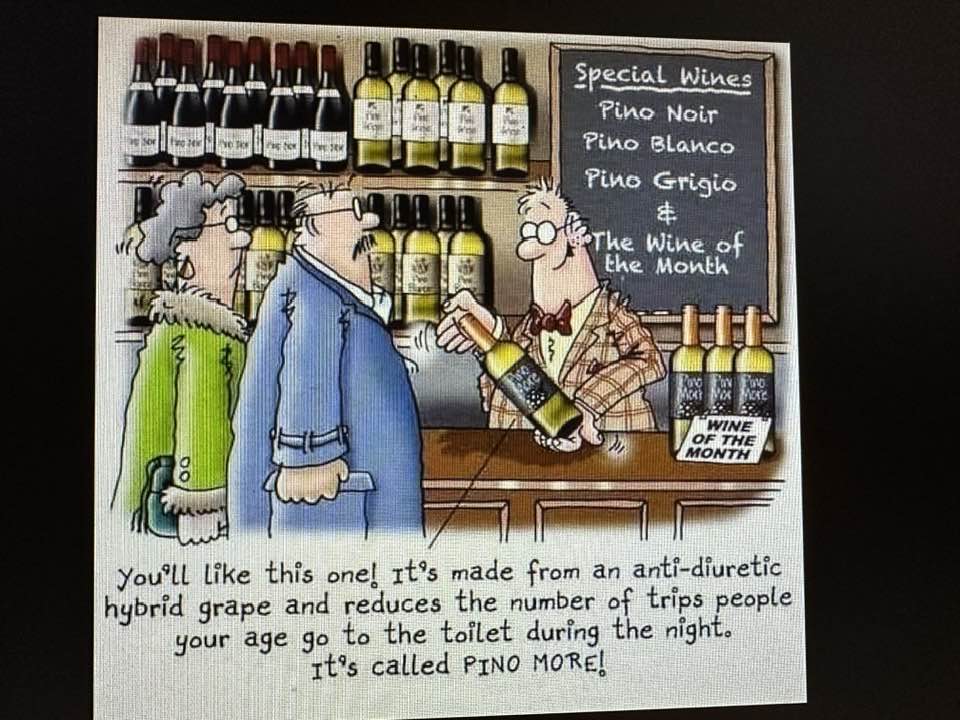 Special Wines
Pino Noir
Pino Blanco
Pino Grigio
&
The Wine of
the Month
Pino
More
WINE
OF THE
MONTH
You'll like this one! It's made from an anti-diuretic
hybrid grape and reduces the number of trips people
your age go to the toilet during the night.
It's called PINO MORE!